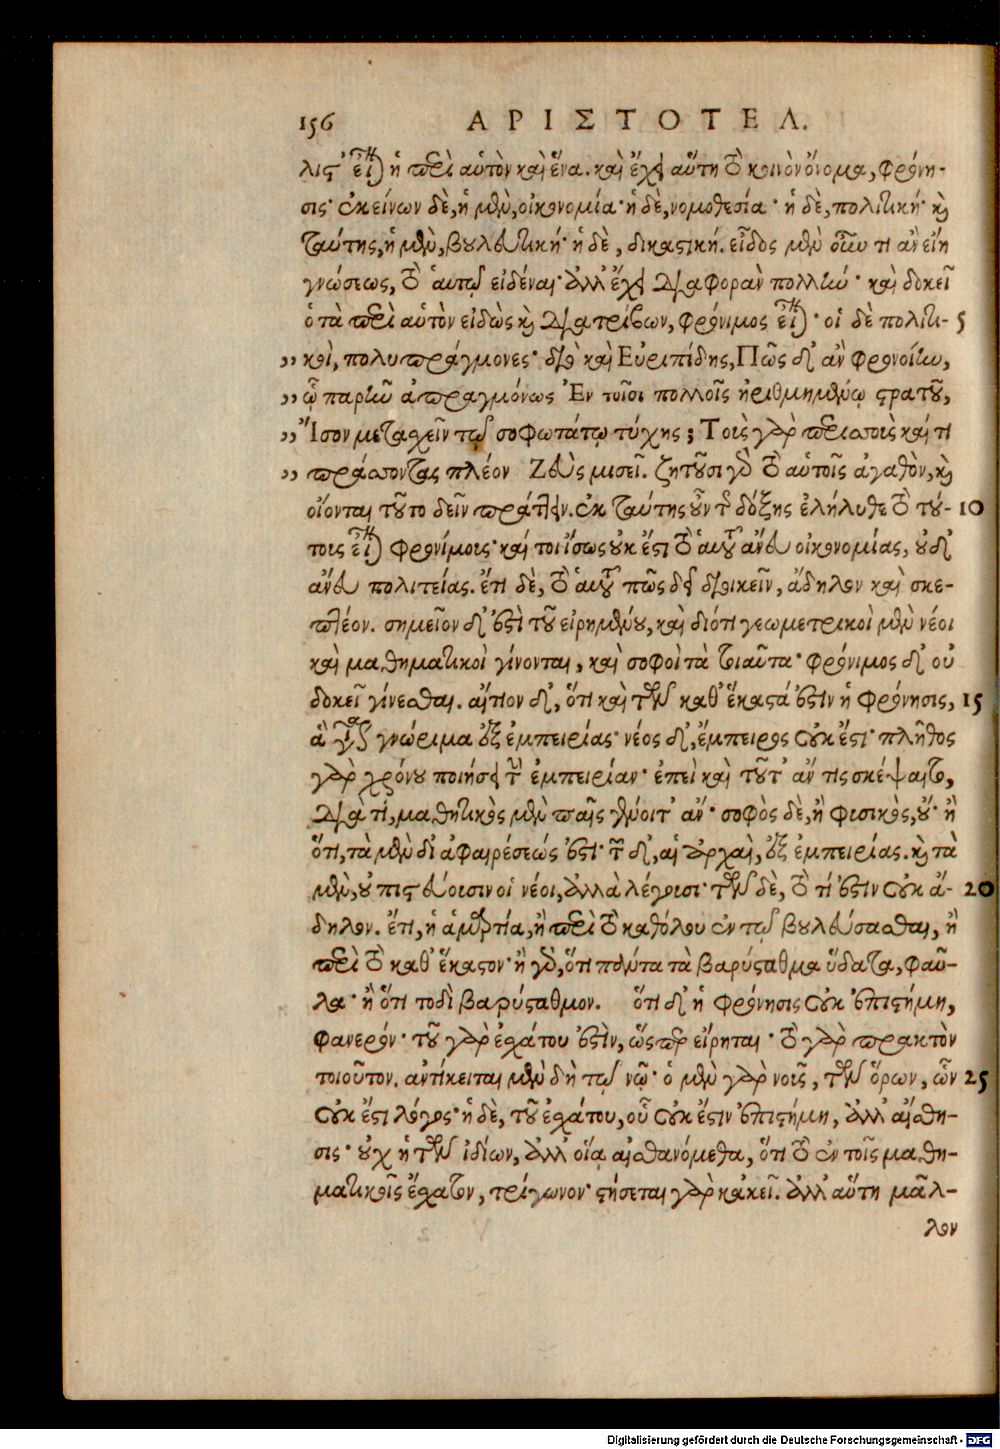 156 ΑΡΙΣΤΟΤΕΛ.
λις᾽ εἶναι ἡ περὶ αὐτὸν καὶ ἕνα. καὶ ἔχει αὕτη τὸ κοινὸν ὄνομα, φρόνη-
σις· ἐκείνων δὲ, ἡ μὲν, οἰκονομία· ἡ δὲ, νομοθεσία· ἡ δὲ, πολιτική· καὶ
ταύτης, ἡ μὲν, βουλευτική· ἡ δὲ, δικαςική. εἶδος μὲν οὖν τι ἂν εἴη
γνώσεως, τὸ αὑτῷ εἰδέναι· ἀλλ᾽ ἔχει διαφορὰν πολλήν· καὶ δοκεῖ
ὁ τὰ περὶ αὑτὸν εἰδὼς καὶ διατρίβων, φρόνιμος εἶναι· οἱ δὲ πολιτι- 5
,, κοὶ, πολυπράγμονες· διὸ καὶ Εὐριπίδης, Πῶς δ᾽ ἂν φρονοίην,
,, ᾧ παρῆν ἀπραγμόνως Ἐν τοῖσι πολλοῖς ἠριθμημένῳ ςρατοῦ,
,, Ἴσον μετασχεῖν τῷ σοφωτάτῳ τύχης; Τοὶς γὰρ περισσοὶς καί τι
,, πράσσοντας πλέον Ζεὺς μισεῖ. ζητοῦσι γὰρ τὸ αὑτοῖς ἀγαθὸν, καὶ
οἴονται τοῦτο δεῖν πράττειν. ἐκ ταύτης οὖν τῆς δόξης ἐλήλυθε τὸ τού- 10
τοις εἶναι φρονίμοις· καί τοι ἴσως οὐκ ἔςι τὸ αὑτοῦ ἄνευ οἰκονομίας, οὐδ᾽
ἄνευ πολιτείας. ἔτι δὲ, τὸ αὑτοῦ πῶς δεῖ διοικεῖν, ἄδηλον καὶ σκε-
πτέον. σημεῖον δ᾽ ἐςὶ τοῦ εἰρημένου, καὶ διότι γεωμετρικοὶ μὲν νέοι
καὶ μαθηματικοὶ γίνονται, καὶ σοφοὶ τὰ τοιαῦτα· φρόνιμος δ᾽ οὐ
δοκεῖ γίνεσθαι. αἴτιον δ᾽, ὅτι καὶ τῶν καθ᾽ ἕκαςά ἐςιν ἡ φρόνησις, 15
ἃ γίνεται γνώριμα ἐξ ἐμπειρίας· νέος δ᾽, ἔμπειρος οὐκ ἔςι· πλῆθος
γὰρ χρόνου ποιήσει τὴν ἐμπειρίαν· ἐπεὶ καὶ τοῦτ᾽ ἄν τις σκέψαιτο,
διὰ τί, μαθητικὸς μὲν παῖς γένοιτ᾽ ἄν· σοφὸς δὲ, ἢ φισικὸς, οὔ· ἢ
ὅτι, τὰ μὲν δι ἀφαιρέσεώς ἐςι· τῶν δ᾽, αἱ ἀρχαὶ, ἐξ ἐμπειρίας. καὶ τὰ
μὲν, οὐ πιςεύουσιν οἱ νέοι, ἀλλὰ λέγουσι· τῶν δὲ, τὸ τί ἐςιν οὐκ ἄ- 20
δηλον. ἔτι, ἡ ἁμαρτία, ἢ περὶ τὸ καθόλου ἐν τῷ βουλεύσασθαι, ἢ
περὶ τὸ καθ᾽ ἕκαςον· ἢ γὰρ, ὅτι πάντα τὰ βαρύςαθμα ὕδατα, φαῦ-
λα· ἢ ὅτι τοδὶ βαρύςαθμον. ὅτι δ᾽ ἡ φρόνησις οὐκ ἐπιςήμη,
φανερόν· τοῦ γὰρ ἐσχάτου ἐςὶν, ὥςπερ εἴρηται· τὸ γὰρ πρακτὸν
τοιοῦτον. ἀντίκειται μὲν δὴ τῷ νῷ· ὁ μὲν γὰρ νοῖς, τῶν ὅρων, ὧν 25
οὐκ ἔςι λόγος· ἡ δὲ, τοῦ ἐσχάτου, οὗ οὐκ ἔςιν ἐπιςήμη, ἀλλ᾽ αἴσθη-
σις· οὐχ ἡ τῶν ἰδίων, ἀλλ᾽ οἵᾳ αἰσθανόμεθα, ὅτι τὸ ἐν τοῖς μαθη-
ματικοῖς ἔσχατον, τρίγωνον· ςήσεται γὰρ κἀκεῖ. ἀλλ᾽ αὕτη μᾶλ-
λον
Digitalisierung gefördert durch die Deutsche Forschungsgemeinschaft - DFG